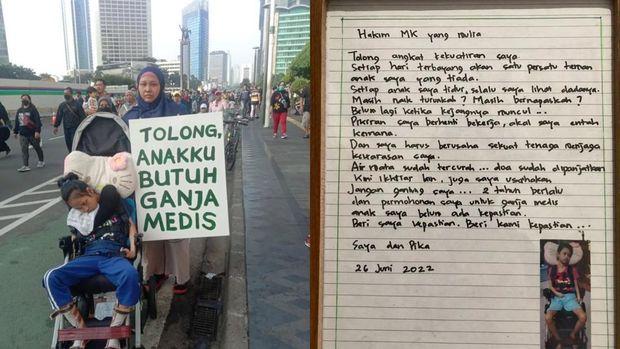 TOLONG,
ANAKKU
BUTUH
GANJA
MEDIS
Hakim MK yang mulia
Tolong angkat kekuatiran saya.
Setiap hari terbayang akan satu persatu teman
anak saya yang tiada.
Setiap anak saya tidur, selalu saya lihat dadanya.
Masih naik turunkah ? Masih bernapaskah ?
Belum lagi ketika kejangnya muncul ...
Pikiran saya berhenti bekerja, akal saya entah
kemana.
Dan saya harus berusaha sekuat tenaga menjaga
kewarasan saya.
Air mata sudah tercurah ... doa sudah dipanjatkan
Kini ikhtiar lain, juga saya usahakan
Jangan gantung saya ... 2 tahun berlalu
dan permohonan saya untuk ganja medis
anak saya belum ada kepastian.
Beri saya kepastian. Beri kami kepastian ...
Saya dan Pika
26 Juni 2022